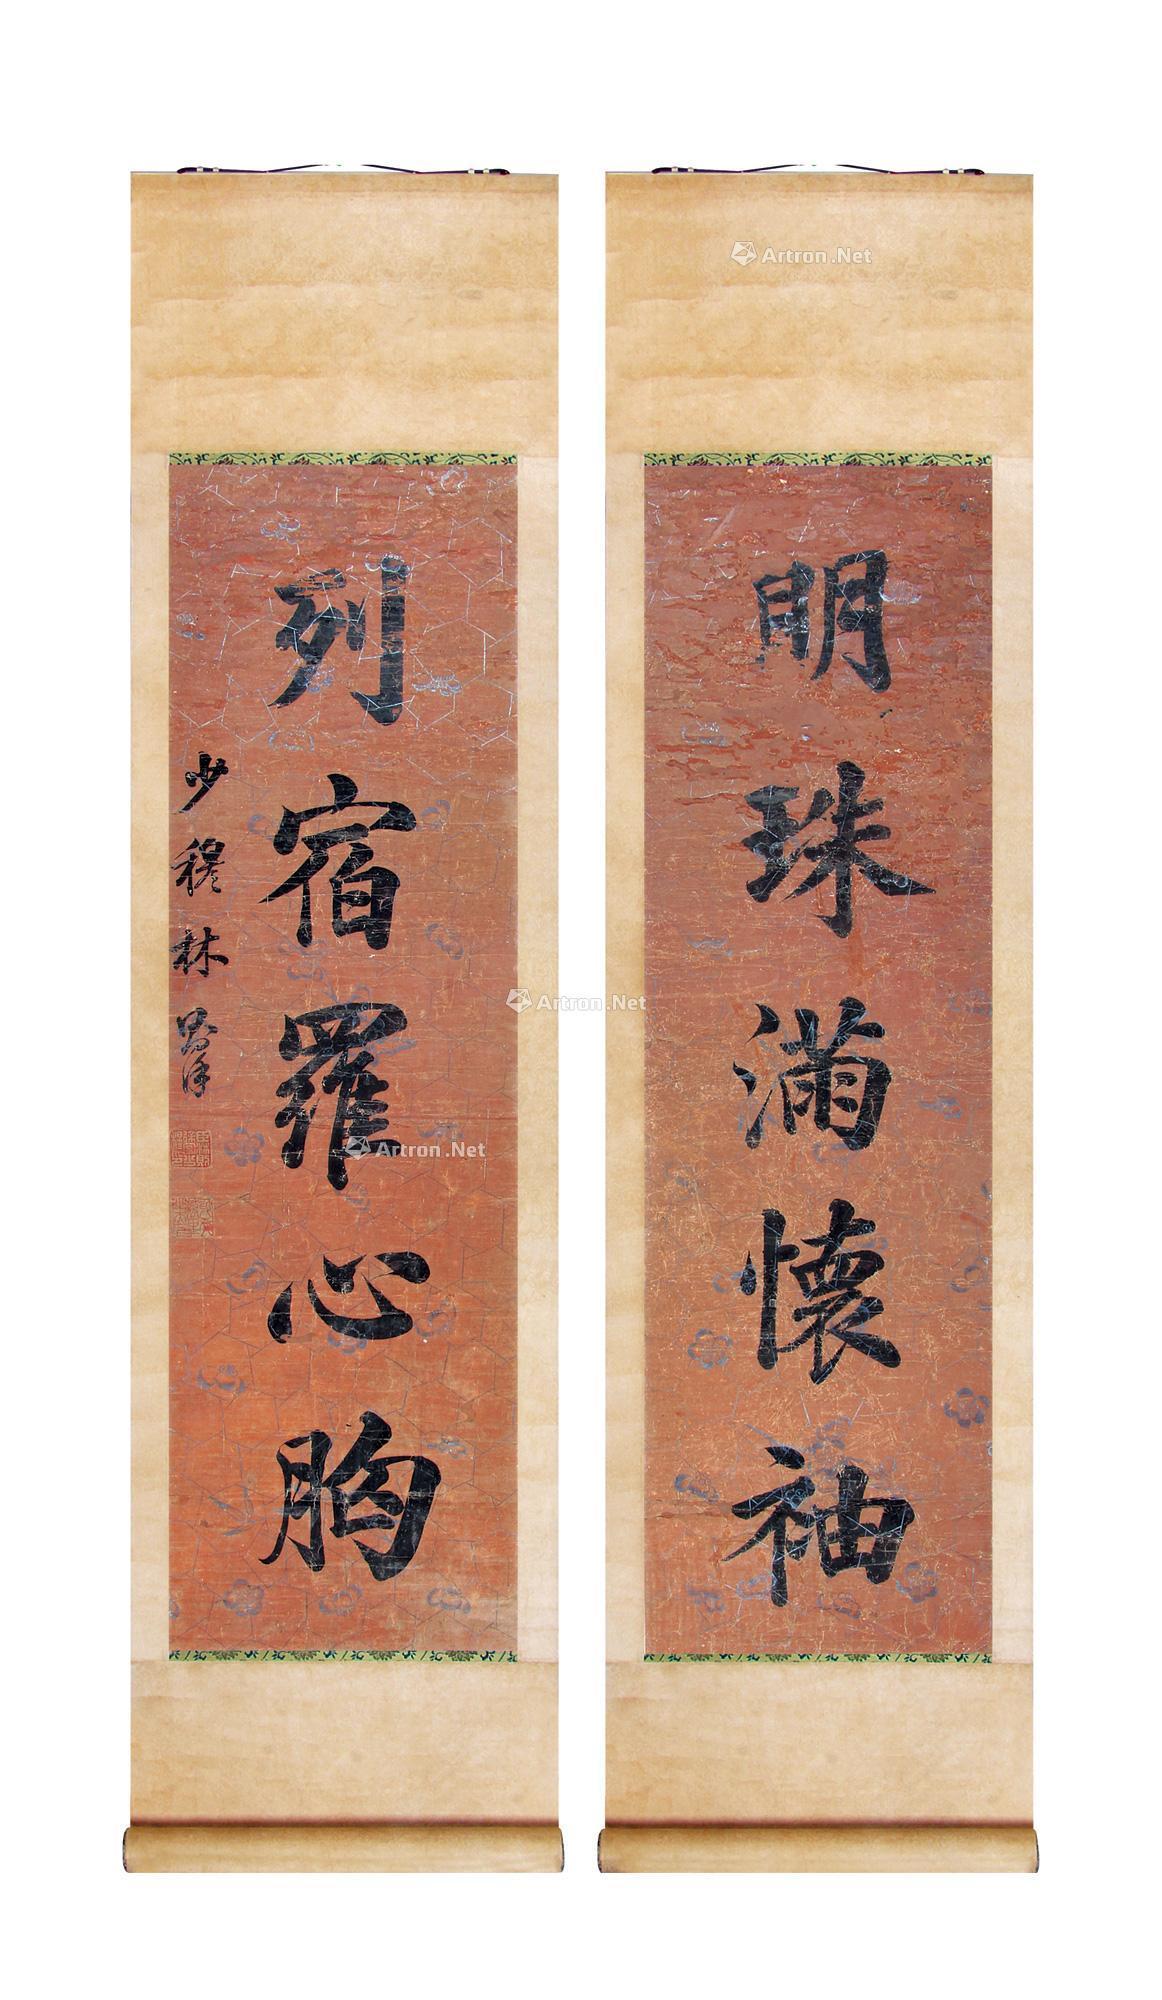 明珠滿懷袖
列宿羅心胸
少穆林則徐
Artron.Net
Artron.Net
Artron.Net